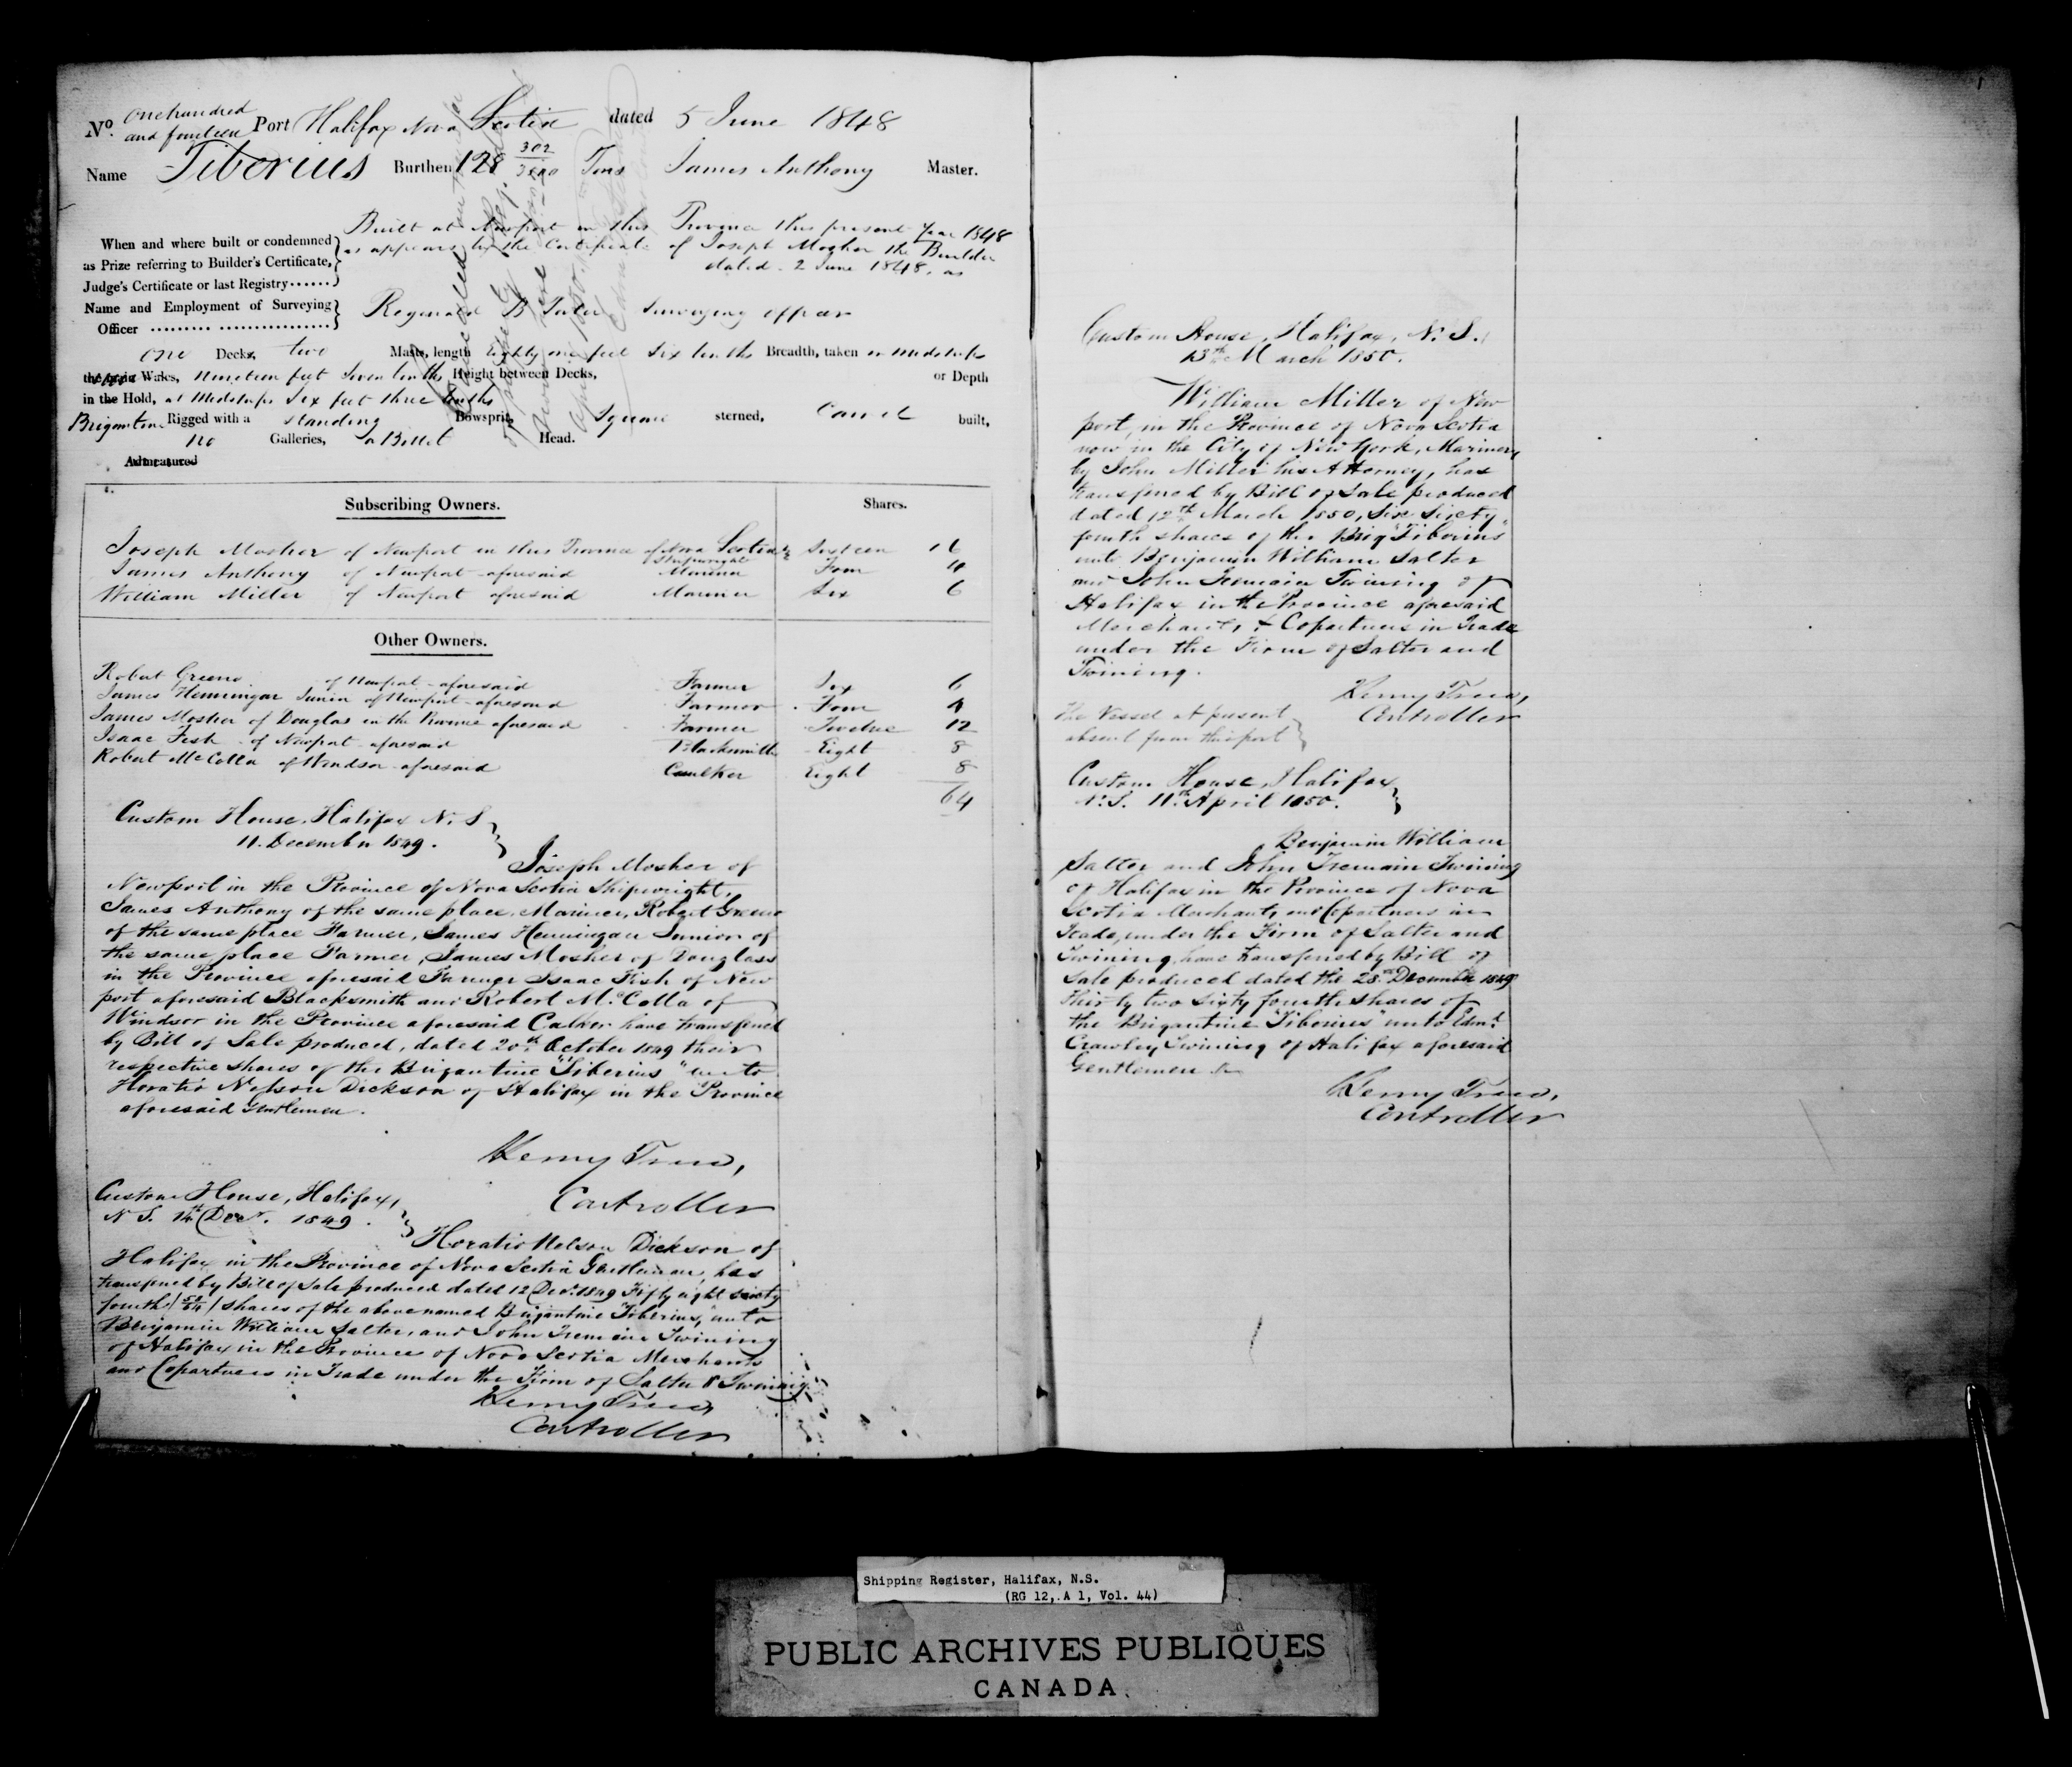 No. One hundred and fourteen Port Halifax Nova Scotia dated 5 June 1848
Name Tiberius Burthen 128 302/3500 Tons James Anthony Master.
Built at Newport in this Province this present Year 1848
When and where built or condemned as appears by the Certificate of Joseph Mosher the Builder
as Prize referring to Builder's Certificate, dated 2 June 1848, as
Judge's Certificate or last Registry......
Name and Employment of Surveying Reginald B Surveying officer
Officer
One Decks, two Masts, length Eighty one feet Six tenths Breadth, taken in Midships
the main Wales, Nineteen feet Seven tenths Height between Decks, or Depth
in the Hold, at Midships Six feet three tenths
Brigantine Rigged with a standing Bowsprit, Square sterned, Carvel built,
no Galleries, a Billet Head.
Admeasured
Subscribing Owners. Shares.
Joseph Mosher of Newport in this Province of Nova Scotia Shipwright Sixteen 16
James Anthony of Newport aforesaid Mariner Four 4
William Miller of Newport aforesaid Mariner Six 6
Other Owners.
Robert Greeno of Newport aforesaid Farmer Six 6
James Henningar Junior of Newport aforesaid Farmer Four 4
James Mosher of Douglas in the Province aforesaid Farmer Twelve 12
Isaac Fish of Newport aforesaid Blacksmith Eight 8
Robert McColla of Windsor aforesaid Caulker Eight 8
64
Custom House, Halifax N. S
11. December 1849.
Joseph Mosher of
Newport in the Province of Nova Scotia Shipwright,
James Anthony of the same place, Mariner, Robert Greeno
of the same place Farmer, James Henningar Junior of
the same place Farmer, James Mosher of Douglass
in the Province aforesaid Farmer Isaac Fish of New
port aforesaid Blacksmith and Robert McColla of
Windsor in the Province aforesaid Calker have transferred
by Bill of Sale produced, dated 20th October 1849 their
respective shares of the Brigantine "Tiberius" unto
Horatio Nelson Dickson of Halifax in the Province
aforesaid Gentleman.
Henry Trew,
Controller
Custom House, Halifax,
N S. 14th Decr. 1849.
Horatio Nelson Dickson of
Halifax in the Province of Nova Scotia Gentleman, has
transferred by Bill of Sale produced dated 12 Decr. 1849 Fifty eight sixty
fourth (58/64) shares of the above named Brigantine "Tiberius," unto
Benjamin William Salter, and John Tremain Twining
of Halifax in the Province of Nova Scotia Merchants
and Copartners in Trade under the Firm of Salter & Twining.
Henry Trew,
Controller
Custom House, Halifax, N. S.
13th March 1850.
William Miller of New
port, in the Province of Nova Scotia
now in the City of New York, Mariner,
by John Miller his Attorney, has
transferred by Bill of Sale produced
dated 12th March 1850, Six Sixty
fourth shares of the Brig "Tiberius
unto Benjamin William Salter
and John Tremain Twining of
Halifax in the Province aforesaid
Merchants, & Copartners in Trade
under the Firm of Salter and
Twining.
Henry Trew,
Controller
The Vessel at present
absent from this port
Custom House, Halifax
N. S. 11th April 1850.
Benjamin William
Salter and John Tremain Twining
of Halifax in the Province of Nova
Scotia Merchants, and Copartners in
Trade, under the Firm of Salter and
Twining, have transferred by Bill of
Sale produced dated the 28th December 1849
thirty two sixty fourth shares of
the Brigantine "Tiberius" unto Edmd.
Crawley Twining of Halifax aforesaid
Gentleman
Henry Trew,
Controller
Shipping Register, Halifax, N.S.
(RG 12, A 1, Vol. 44)
PUBLIC ARCHIVES PUBLIQUES
CANADA